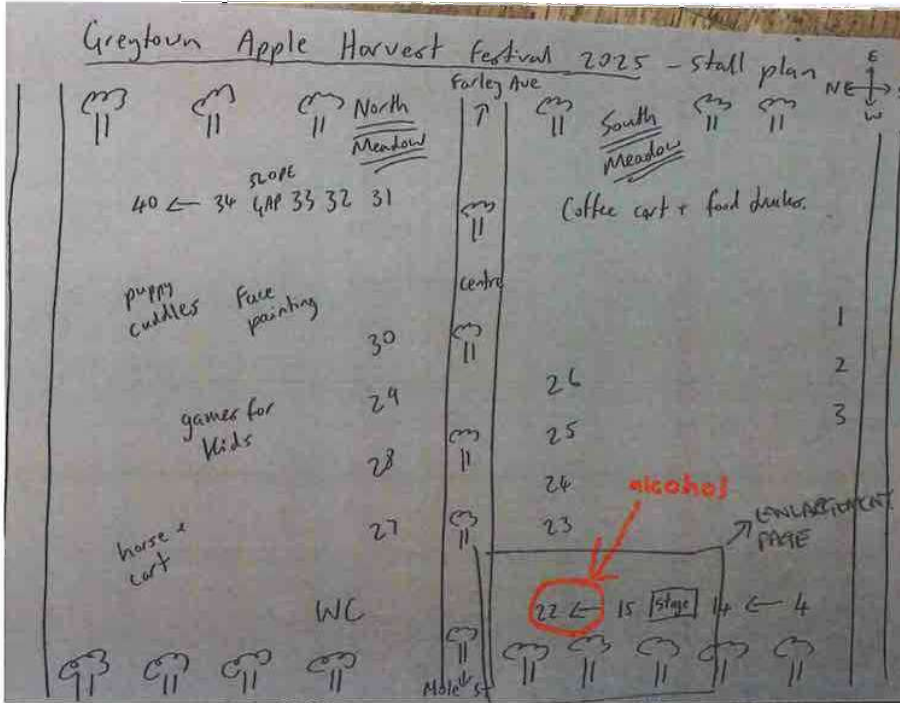 Greytown Apple Harvest Festival 2025 - stall plan
E
N S
W
Farley Ave
North
Meadow
South
Meadow
SLOPE
40 ← 34 GAP 33 32 31
Coffee cart + food
centre
puppy
cuddles
Face
painting
30
29
28
27
games for
kids
horse +
cart
WC
1
2
3
26
25
24
23
alcohol
ENLARGEMENT
PAGE
22 ← 15 stage 14 ← 4
Mole St